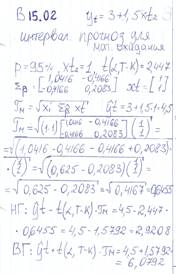 В 15.02 yt = 3 + 1,5 xt2
интервал. прогноз для
мат. ожидания
p = 95% xt2 = 1 t(α, T-K) = 2,447
Σβ = [1,0416 -0,4166; -0,4166 0,2083] xt = [1; 1]
Tн = √(xt' Σβ xt) ŷt = 3 + 1,5·1 = 4,5
Tн = √((1 1) [1,0416 -0,4166; -0,4166 0,2083] (1; 1)) =
= √((1,0416 - 0,4166 -0,4166 + 0,2083) ·
· (1; 1)) = √((0,625 - 0,2083) (1; 1))
= √(0,625 - 0,2083) = √0,4167 = 0,6455
НГ: ŷt - t(α, T-K) · Tн = 4,5 - 2,447 ·
· 0,6455 = 4,5 - 1,5792 = 2,9208
ВГ: ŷt + t(α, T-K) · Tн = 4,5 + 1,5792 =
= 6,0792